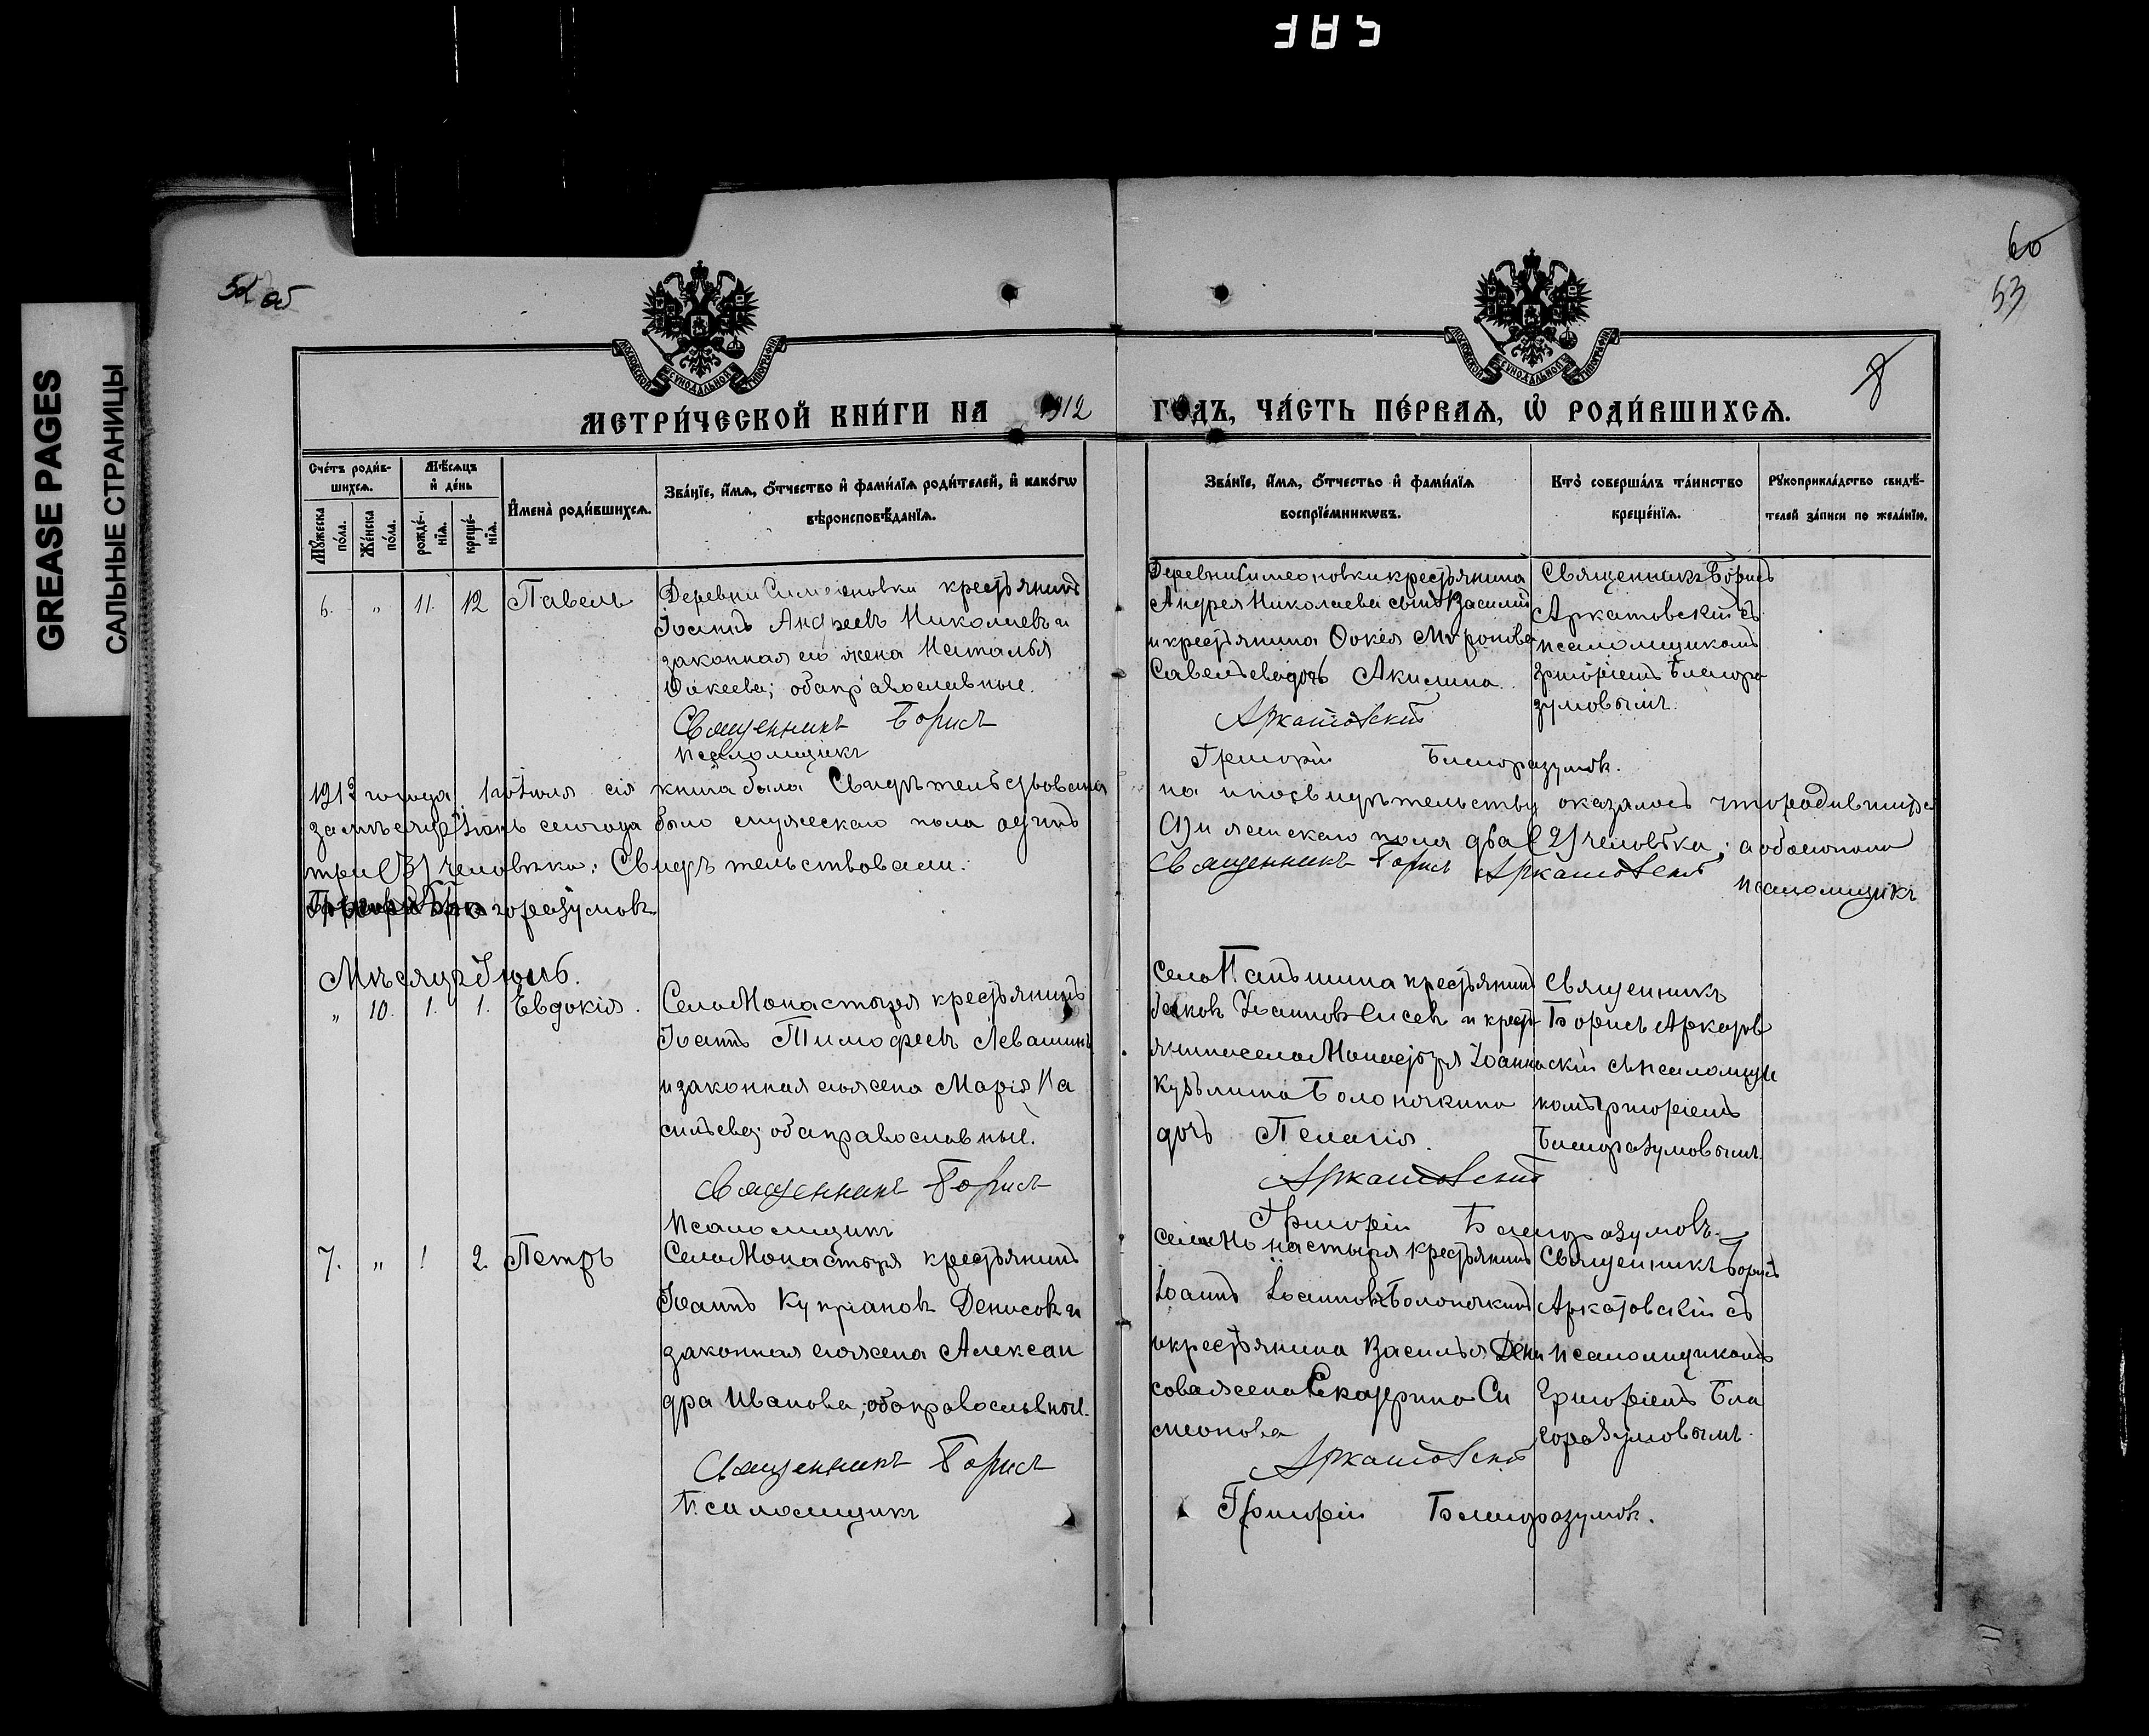 385
GREASE PAGES
САЛЬНЫЕ СТРАНИЦЫ
52 об
60
53
8
МЕТРИ́ЧЕСКОЙ КНИ́ГИ НА 1912 ГО́ДЪ, ЧА́СТЬ ПЕ́РВАѦ, Ѡ҆ РОДИ́ВШИХСѦ.
Сче́тъ роди́в-
шихсѧ.
Мѣ́сѧцъ
и҆ де́нь
Мꙋ́жеска по́ла.
Же́нска по́ла.
рожде́-нїѧ.
креще́-нїѧ.
И҆мена̀ роди́вшихсѧ.
Зва́нїе, и҆́мѧ, ѻ҆́тчество и҆ фами́лїѧ роди́телей, и҆ како́гѡ
вѣроисповѣ́данїѧ.
Зва́нїе, и҆́мѧ, ѻ҆́тчество и҆ фами́лїѧ
воспрїе́мникѡвъ.
Кто̀ соверша́лъ та́инство
креще́нїѧ.
Рꙋкоприкла́дство свидѣ́-
телей за́писи по жела́нїю.
6. „ 11. 12 Павелъ
Деревни Симеоновки крестьянинъ
Іоаннъ Андреевъ Николаевъ и
законная его жена Наталья
Фокеева; оба православные.
Священникъ Борисъ
Псаломщикъ
Деревни Симеоновки крестьянина
Андрея Николаева сынъ Василій
и крестьянина Фокея Миронова
Савельева дочь Акилина.
Аркатовскій
Григорій Благоразумовъ.
Священникъ Борисъ
Аркатовскій съ
псаломщикомъ
Григоріемъ Благора
зумовымъ.
1912 года 1го Іюля сія книга была Свидѣтельствована
на и по свидѣтельству оказалось что родившихся
за мѣсяцъ Іюнь сего года было мужескаго пола одинъ
(1) и женскаго пола два (2) человѣка; а обоего пола
три (3) человѣка. Свидѣтельствовали:
Священникъ Борисъ Аркатовскій Псаломщикъ
Благоразумовъ.
Мѣсяцъ Іюль.
„ 10. 1. 1. Евдокія.
Села Монастыря крестьянинъ
Іоаннъ Тимофеевъ Левашинъ
и законная его жена Марія Ва
сильева; оба православные.
Священникъ Борисъ
Псаломщикъ
Іаковъ Іоанновъ Елисеевъ и кресть
янина села Монастыря Іоанна
Кузьмина Болоночкина
дочь Пелагія.
Аркатовскій
Григорій Благоразумовъ.
Священникъ
Борисъ Аркатов
скій съ псаломщи
комъ Григоріемъ
Благоразумовымъ.
7. „ 1 2. Петръ
Села Монастыря крестьянинъ
Іоаннъ Купріановъ Денисовъ и
законная его жена Алексан
дра Иванова; оба православные.
Священникъ Борисъ
Псаломщикъ
Села Монастыря крестьянинъ
Іоаннъ Іоанновъ Болоночкинъ
и крестьянина Василья Дени
сова жена Екатерина Си
меонова
Аркатовскій
Григорій Благоразумовъ.
Священникъ Борисъ
Аркатовскій съ
псаломщикомъ
Григоріемъ Бла
горазумовымъ.